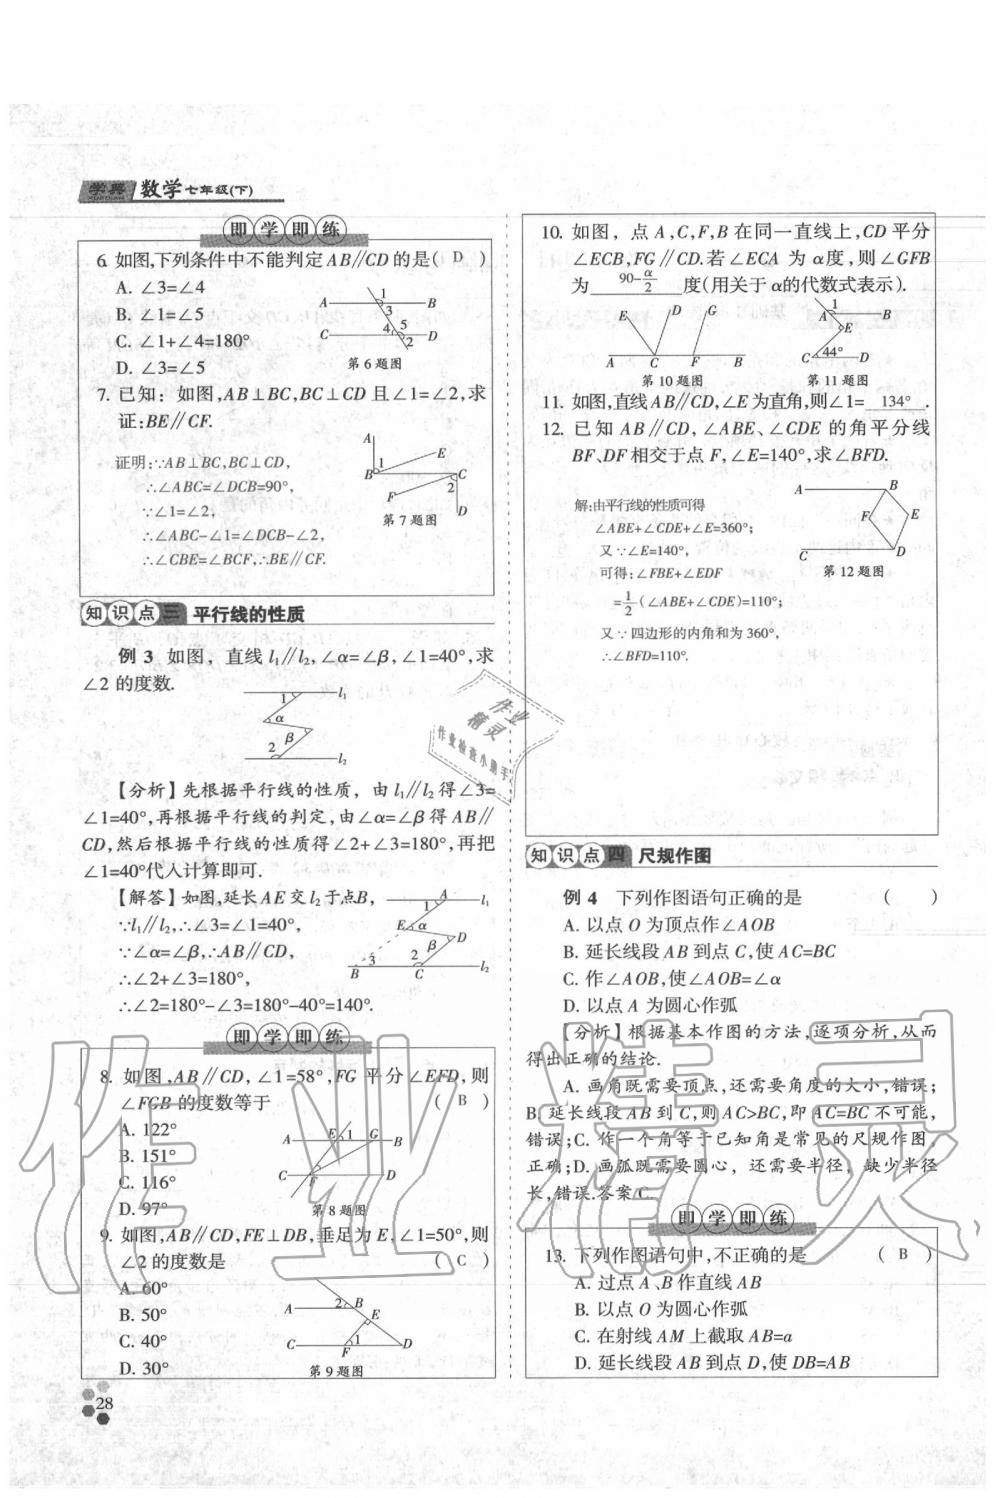 学典 数学七年级(下)
即学即练
6. 如图,下列条件中不能判定AB∥CD的是( D )
A. ∠3=∠4
B. ∠1=∠5
C. ∠1+∠4=180°
D. ∠3=∠5
A 1 B
3
4 5
C 2 D
第6题图
7. 已知：如图,AB⊥BC,BC⊥CD且∠1=∠2,求
证:BE∥CF.
证明:∵AB⊥BC,BC⊥CD,
∴∠ABC=∠DCB=90°,
∵∠1=∠2,
∴∠ABC-∠1=∠DCB-∠2,
∴∠CBE=∠BCF,∴BE∥CF.
A
E
1
B C
2
F
D
第7题图
知识点三 平行线的性质
例3 如图，直线l₁∥l₂,∠α=∠β,∠1=40°,求
∠2的度数.
1 l₁
α
β
2 l₂
【分析】先根据平行线的性质，由l₁∥l₂得∠3=
∠1=40°,再根据平行线的判定,由∠α=∠β得AB∥
CD,然后根据平行线的性质得∠2+∠3=180°,再把
∠1=40°代入计算即可.
【解答】如图,延长AE交l₂于点B,
∵l₁∥l₂,∴∠3=∠1=40°,
∵∠α=∠β,∴AB∥CD,
∴∠2+∠3=180°,
∴∠2=180°-∠3=180°-40°=140°.
A 1 l₁
E α
β D
3 2
B C l₂
即学即练
8. 如图,AB∥CD,∠1=58°,FG平分∠EFD,则
∠FGB的度数等于 ( B )
A. 122°
B. 151°
C. 116°
D. 97°
A E 1 G B
C F D
第8题图
9. 如图,AB∥CD,FE⊥DB,垂足为E,∠1=50°,则
∠2的度数是 ( C )
A. 60°
B. 50°
C. 40°
D. 30°
A 2 B
E
C 1 D
F
第9题图
28
10. 如图，点A,C,F,B在同一直线上,CD平分
∠ECB,FG∥CD.若∠ECA为α度,则∠GFB
为 90-α/2 度(用关于α的代数式表示).
E D G
A C F B
第10题图
1
A B
E
C 44° D
第11题图
11. 如图,直线AB∥CD,∠E为直角,则∠1= 134° .
12. 已知AB∥CD,∠ABE、∠CDE的角平分线
BF、DF相交于点F,∠E=140°,求∠BFD.
解:由平行线的性质可得
∠ABE+∠CDE+∠E=360°;
又∵∠E=140°,
可得:∠FBE+∠EDF
=1/2(∠ABE+∠CDE)=110°;
又∵四边形的内角和为360°,
∴∠BFD=110°.
A B
F E
C D
第12题图
知识点四 尺规作图
例4 下列作图语句正确的是 ( )
A. 以点O为顶点作∠AOB
B. 延长线段AB到点C,使AC=BC
C. 作∠AOB,使∠AOB=∠α
D. 以点A为圆心作弧
【分析】根据基本作图的方法,逐项分析,从而
得出正确的结论.
A. 画角既需要顶点,还需要角度的大小,错误;
B. 延长线段AB到C,则AC>BC,即AC=BC不可能,
错误;C. 作一个角等于已知角是常见的尺规作图,
正确;D. 画弧既需要圆心，还需要半径，缺少半径
长,错误.答案C.
即学即练
13. 下列作图语句中,不正确的是 ( B )
A. 过点A、B作直线AB
B. 以点O为圆心作弧
C. 在射线AM上截取AB=a
D. 延长线段AB到点D,使DB=AB
作业
精灵
作业检查小助手
作业精灵